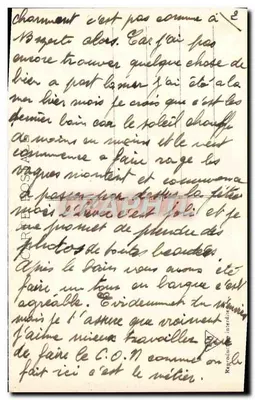 charment c'est pas comme à 2
Bizerte alors. Car j'ai pas
encore trouver quelque chose de
bien a part la mer j'ai été a la
mer hier mais je crois que c'est les
dernier bain car le soleil chauffe
de moins en moins et le vent
commence a faire rage les
vagues montent et commence
a passer par dessus la
mais c'est et je
me promet de prendre des
photos de toutes beautées
Après le bain nous avons été
faire un tour en barque c'est
agréable. Evidemment du
mais je t'assure que vraiment
j'aime mieux travailler que
de faire le C.O.N comme on le
fait ici c'est le métier.
CARTE POSTALE
Reproduction interdite